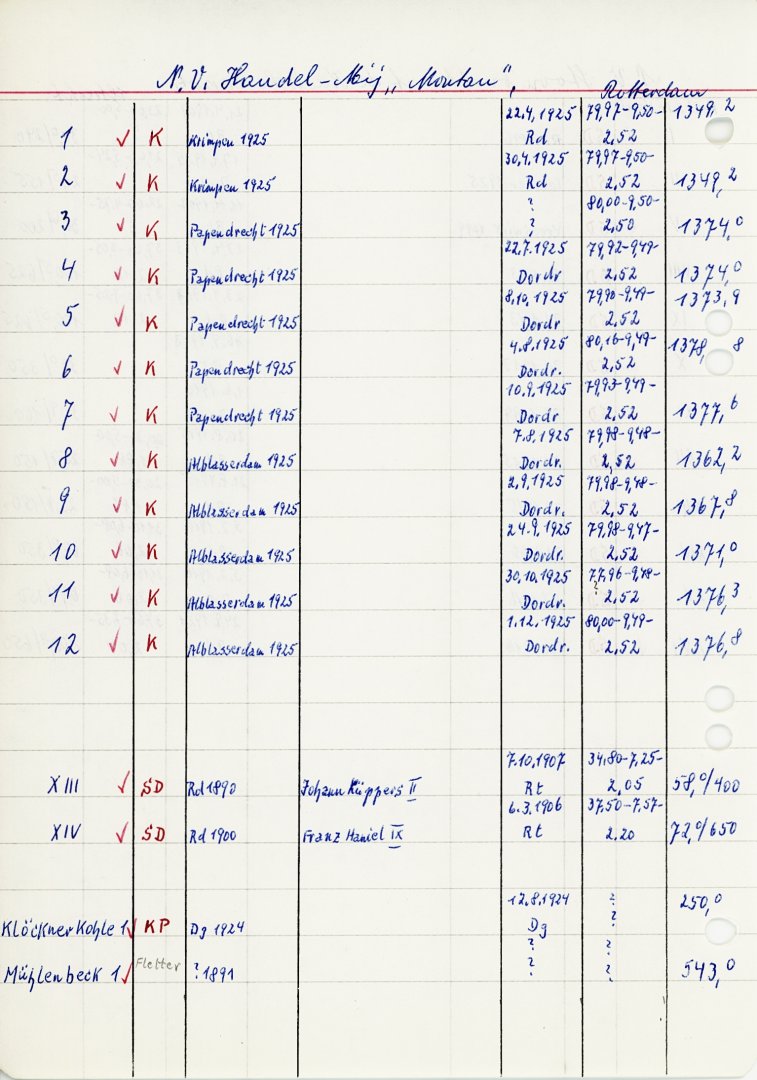 N.V. Handel-Mij „Montan", Rotterdam
22.4.1925 79,97-9,50- 1349,2
1 ✓ K Krimpen 1925 Rd 2,52
30.4.1925 79,97-9,50-
2 ✓ K Krimpen 1925 Rd 2,52 1349,2
? 80,00-9,50-
3 ✓ K Papendrecht 1925 ? 2,50 1374,0
22.7.1925 79,92-9,49-
4 ✓ K Papendrecht 1925 Dordr 2,52 1374,0
8.10.1925 79,90-9,49- 1373,9
5 ✓ K Papendrecht 1925 Dordr 2,52
4.8.1925 80,16-9,49- 1378,8
6 ✓ K Papendrecht 1925 Dordr. 2,52
10.9.1925 79,93-9,49-
7 ✓ K Papendrecht 1925 Dordr 2,52 1377,6
7.8.1925 79,98-9,48-
8 ✓ K Alblasserdam 1925 Dordr. 2,52 1362,2
2.9.1925 79,98-9,48-
9 ✓ K Alblasserdam 1925 Dordr. 2,52 1367,8
24.9.1925 79,98-9,47-
10 ✓ K Alblasserdam 1925 Dordr. 2,52 1371,0
30.10.1925 77,96-9,48-
11 ✓ K Alblasserdam 1925 Dordr. ? 2,52 1376,3
1.12.1925 80,00-9,49-
12 ✓ K Alblasserdam 1925 Dordr. 2,52 1376,8
7.10.1907 34,80-7,25-
XIII ✓ SD Rd 1890 Johann Küppers II Rt 2,05 58,0/400
6.3.1906 37,50-7,57-
XIV ✓ SD Rd 1900 Franz Haniel IX Rt 2,20 72,0/650
12.8.1924 ? 250,0
Klöckner Kohle 1 ✓ KP Dg 1924 Dg ?
? ?
Mühlenbeck 1 ✓ Fletter ? 1891 ? ? 543,0